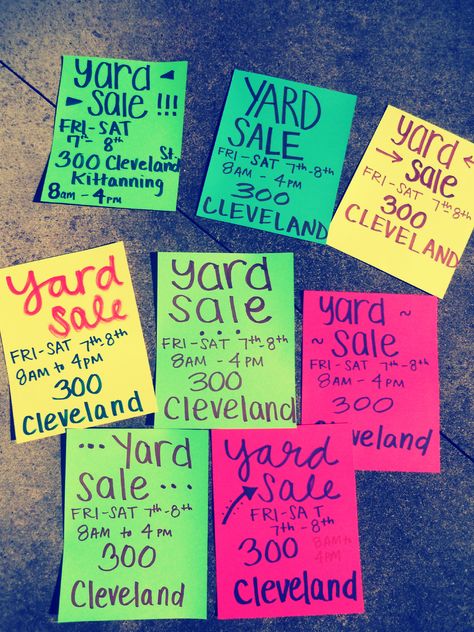 yard
sale !!!
FRI-SAT
7th - 8th
300 Cleveland St.
Kittanning
8am - 4pm
YARD
SALE
FRI-SAT 7th-8th
8AM - 4PM
300
CLEVELAND
yard
→ sale ←
FRI-SAT 7th-8th
8AM - 4PM
300
CLEVELAND
yard
sale
FRI-SAT 7th-8th
8AM to 4PM
300
Cleveland
yard
sale
...
FRI-SAT 7th-8th
8AM - 4PM
300
Cleveland
yard ~
~ sale
FRI-SAT 7th-8th
8AM - 4PM
300
Cleveland
... Yard
sale ...
FRI-SAT 7th-8th
8AM to 4PM
300
Cleveland
yard
sale
FRI-SAT
7th-8th
300 8AM to
4PM
Cleveland